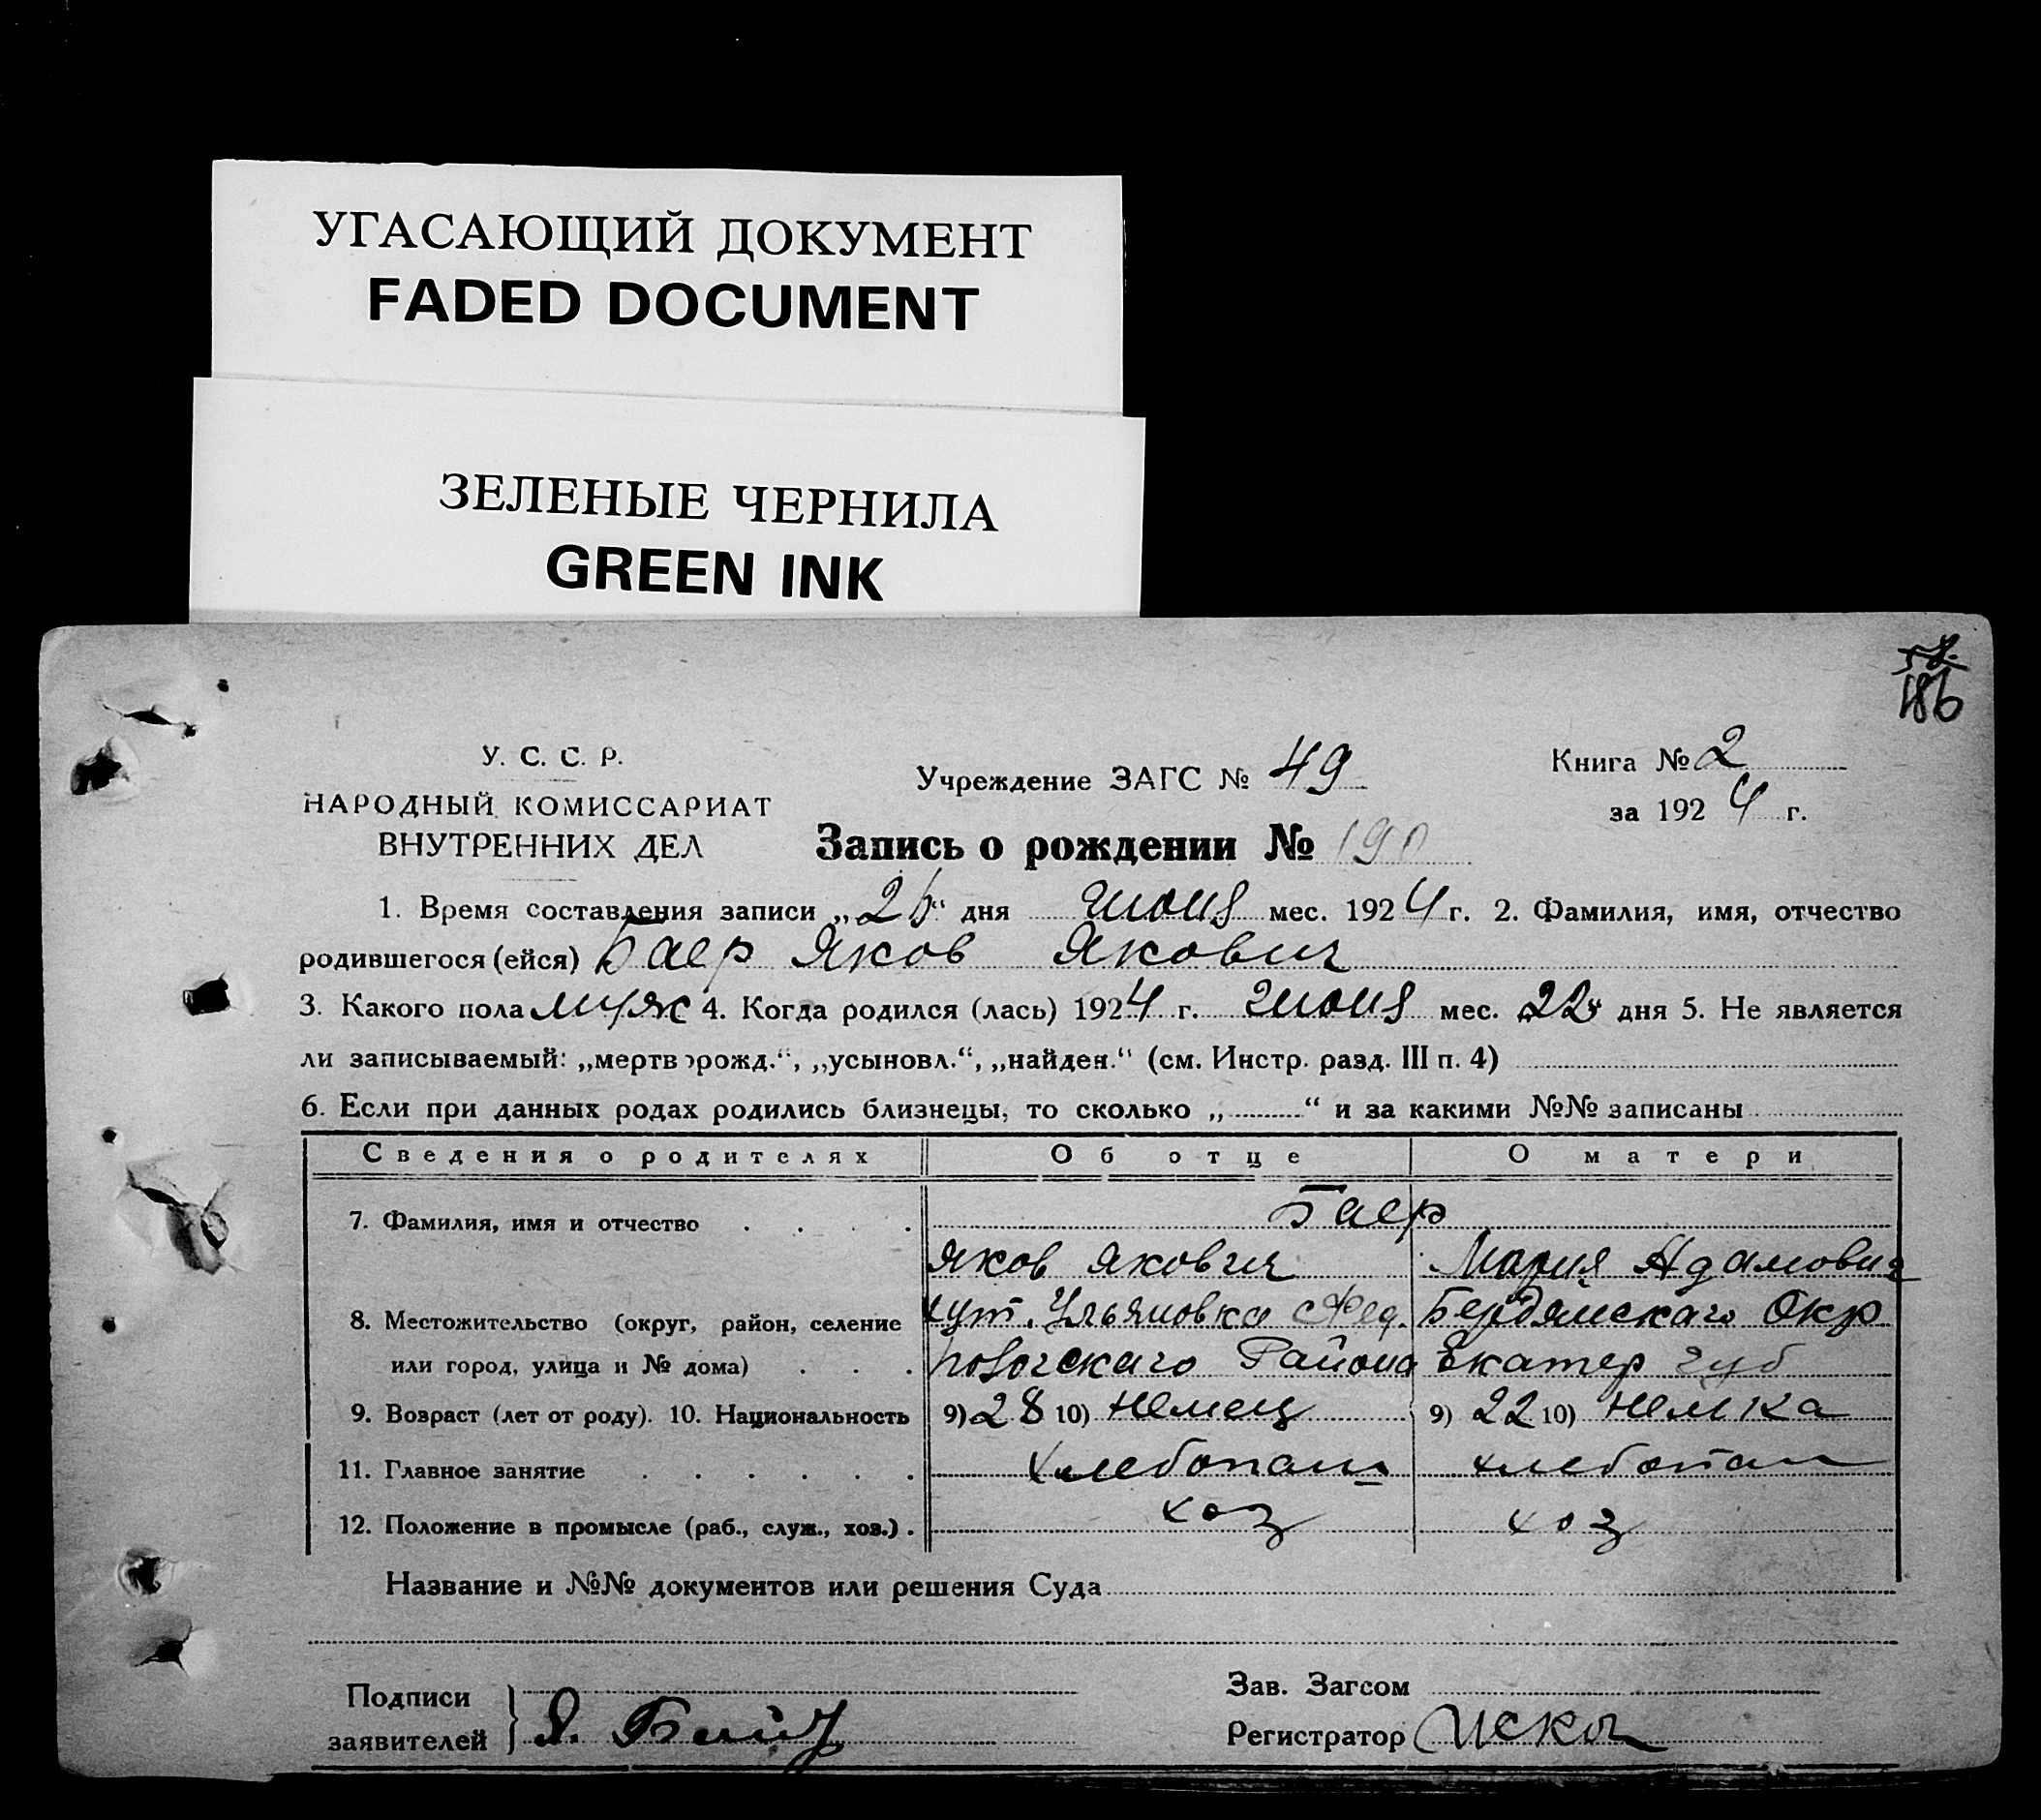 УГАСАЮЩИЙ ДОКУМЕНТ
FADED DOCUMENT
ЗЕЛЕНЫЕ ЧЕРНИЛА
GREEN INK
186
У. С. С. Р.
НАРОДНЫЙ КОМИССАРИАТ
ВНУТРЕННИХ ДЕЛ
Учреждение ЗАГС № 49
Книга № 2
за 1924 г.
Запись о рождении № 190
1. Время составления записи „26“ дня июня мес. 1924 г. 2. Фамилия, имя, отчество
родившегося (ейся) Баер Яков Якович
3. Какого пола муж 4. Когда родился (лась) 1924 г. июня мес. 22 дня 5. Не является
ли записываемый: „мертворожд.“, „усыновл.“, „найден.“ (см. Инстр. разд. III п. 4)
6. Если при данных родах родились близнецы, то сколько „ “ и за какими №№ записаны
Сведения о родителях Об отце О матери
7. Фамилия, имя и отчество . . . . Баер
Яков Якович Мария Адамовна
8. Местожительство (округ, район, селение хут. Ульяновка Бердянскаго Окр
или город, улица и № дома) . . . Района Екатер губ
9. Возраст (лет от роду). 10. Национальность 9) 28 10) Немец 9) 22 10) Немка
11. Главное занятие . . . . . . хлебопаш хлебопаш
12. Положение в промысле (раб., служ., хоз.) . хоз хоз
Название и №№ документов или решения Суда
Подписи
заявителей } Я.
Зав. Загсом
Регистратор